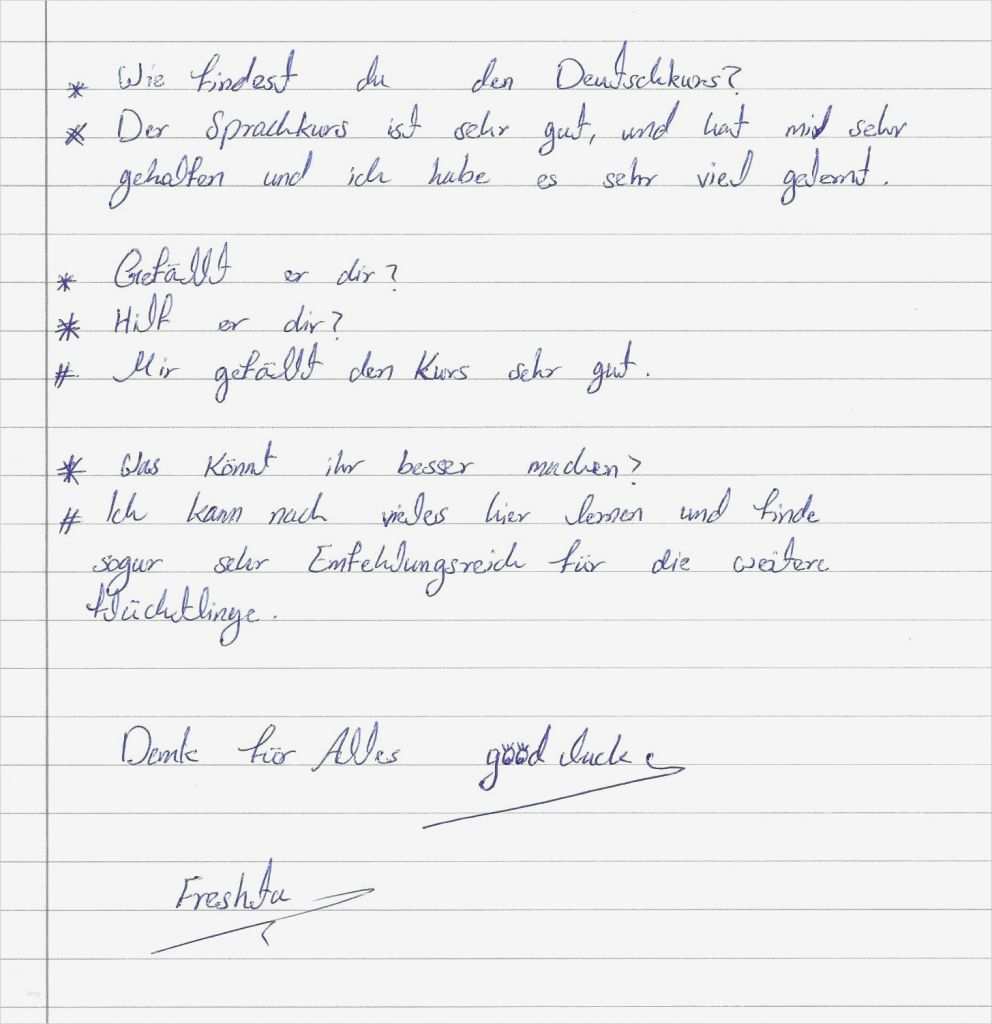 * Wie findest du den Deutschkurs?
* Der Sprachkurs ist sehr gut, und hat mir sehr
gehalfen und ich habe es sehr viel gelernt.
* Gefällt er dir?
* Hilf er dir?
# Mir gefällt den Kurs sehr gut.
* Was könnt ihr besser machen?
# Ich kann nach vieles hier lernen und finde
sogar sehr Emfehlungsreich für die weitere
flüchtlinge.
Dank für Alles good luck
Freshta